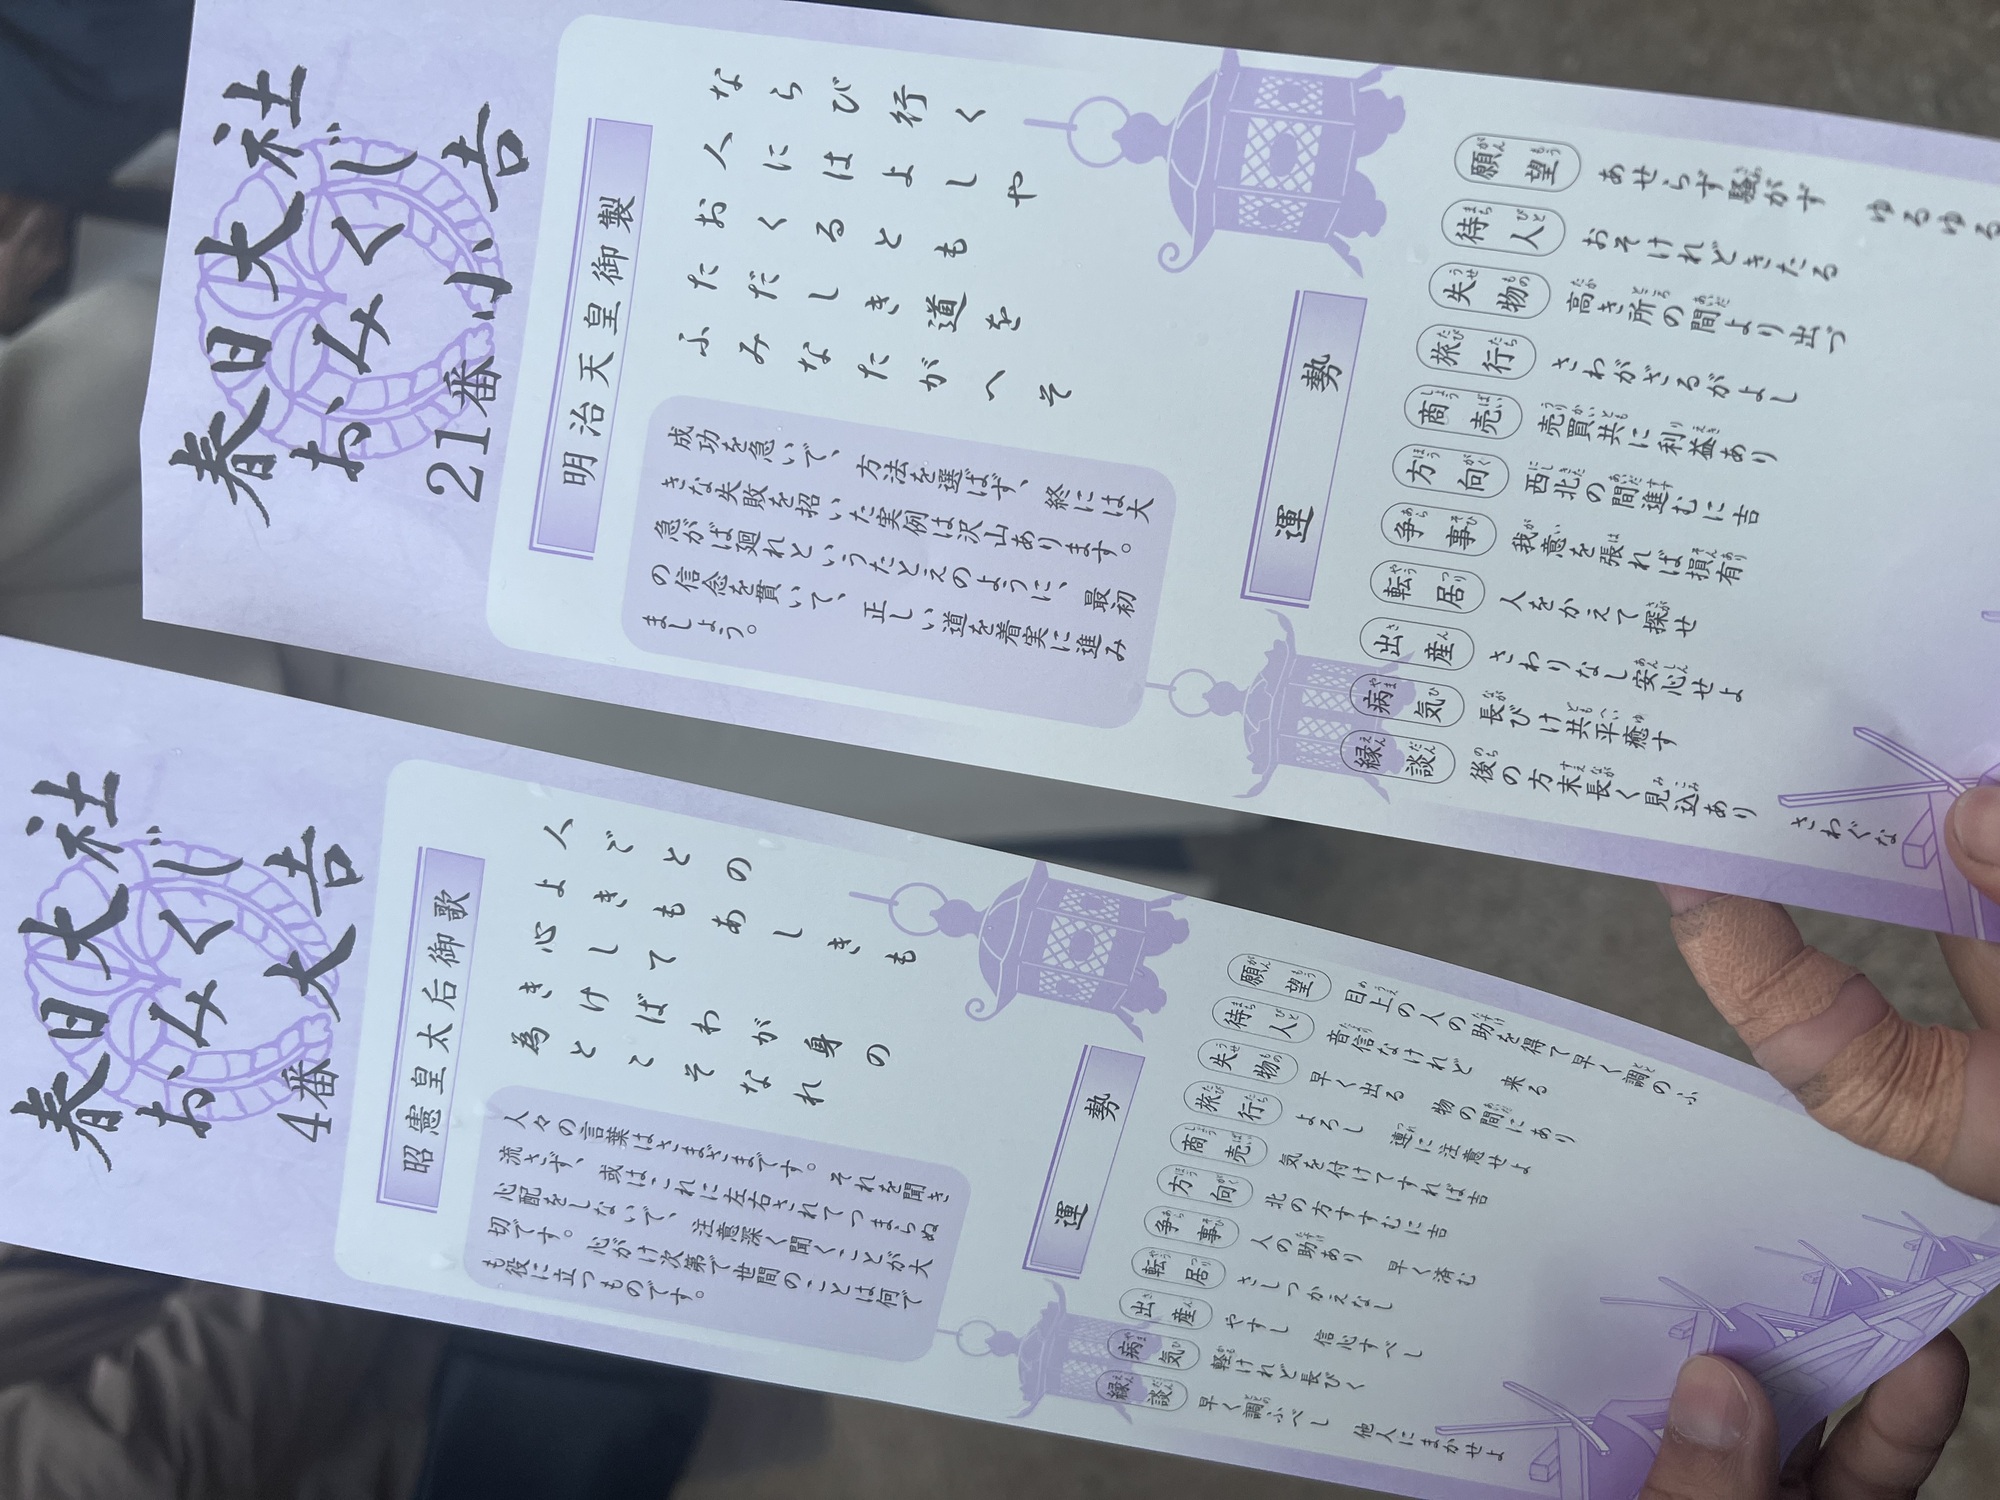 春日大社
おみくじ
21番 小吉
明治天皇御製
ならび行く
人にはよしや
おくるとも
ただしき道を
ふみなたがへそ
成功を急いで、方法を選ばず、終には大
きな失敗を招いた実例は沢山あります。
急がば廻れというたとえのように、最初
の信念を貫いて、正しい道を着実に進み
ましょう。
運勢
願望 あせらず騒がず ゆるゆる
待人 おそけれどきたる
失物 高き所の間より出づ
旅行 さわがざるがよし
商売 売買共に利益あり
方向 西北の間進むに吉
争事 我意を張れば損有
転居 人をかえて探せ
出産 さわりなし安心せよ
病気 長びけ共平癒す
縁談 後の方末長く見込あり さわぐな
春日大社
おみくじ
4番 大吉
昭憲皇太后御歌
人ごとの
よきもあしきも
心して
きけばわが身の
為とこそなれ
人々の言葉はさまざまです。それを聞き
流さず、或はこれに左右されてつまらぬ
心配をしないで、注意深く聞くことが大
切です。心がけ次第で世間のことは何で
も役に立つものです。
運勢
願望 目上の人の助を得て早く調のふ
待人 音信なけれど 来る
失物 早く出る 物の間にあり
旅行 よろし 連に注意せよ
商売 気を付けてすれば吉
方向 北の方すすむに吉
争事 人の助あり 早く済む
転居 さしつかえなし
出産 やすし 信心すべし
病気 軽けれど長びく
縁談 早く調ふべし 他人にまかせよ